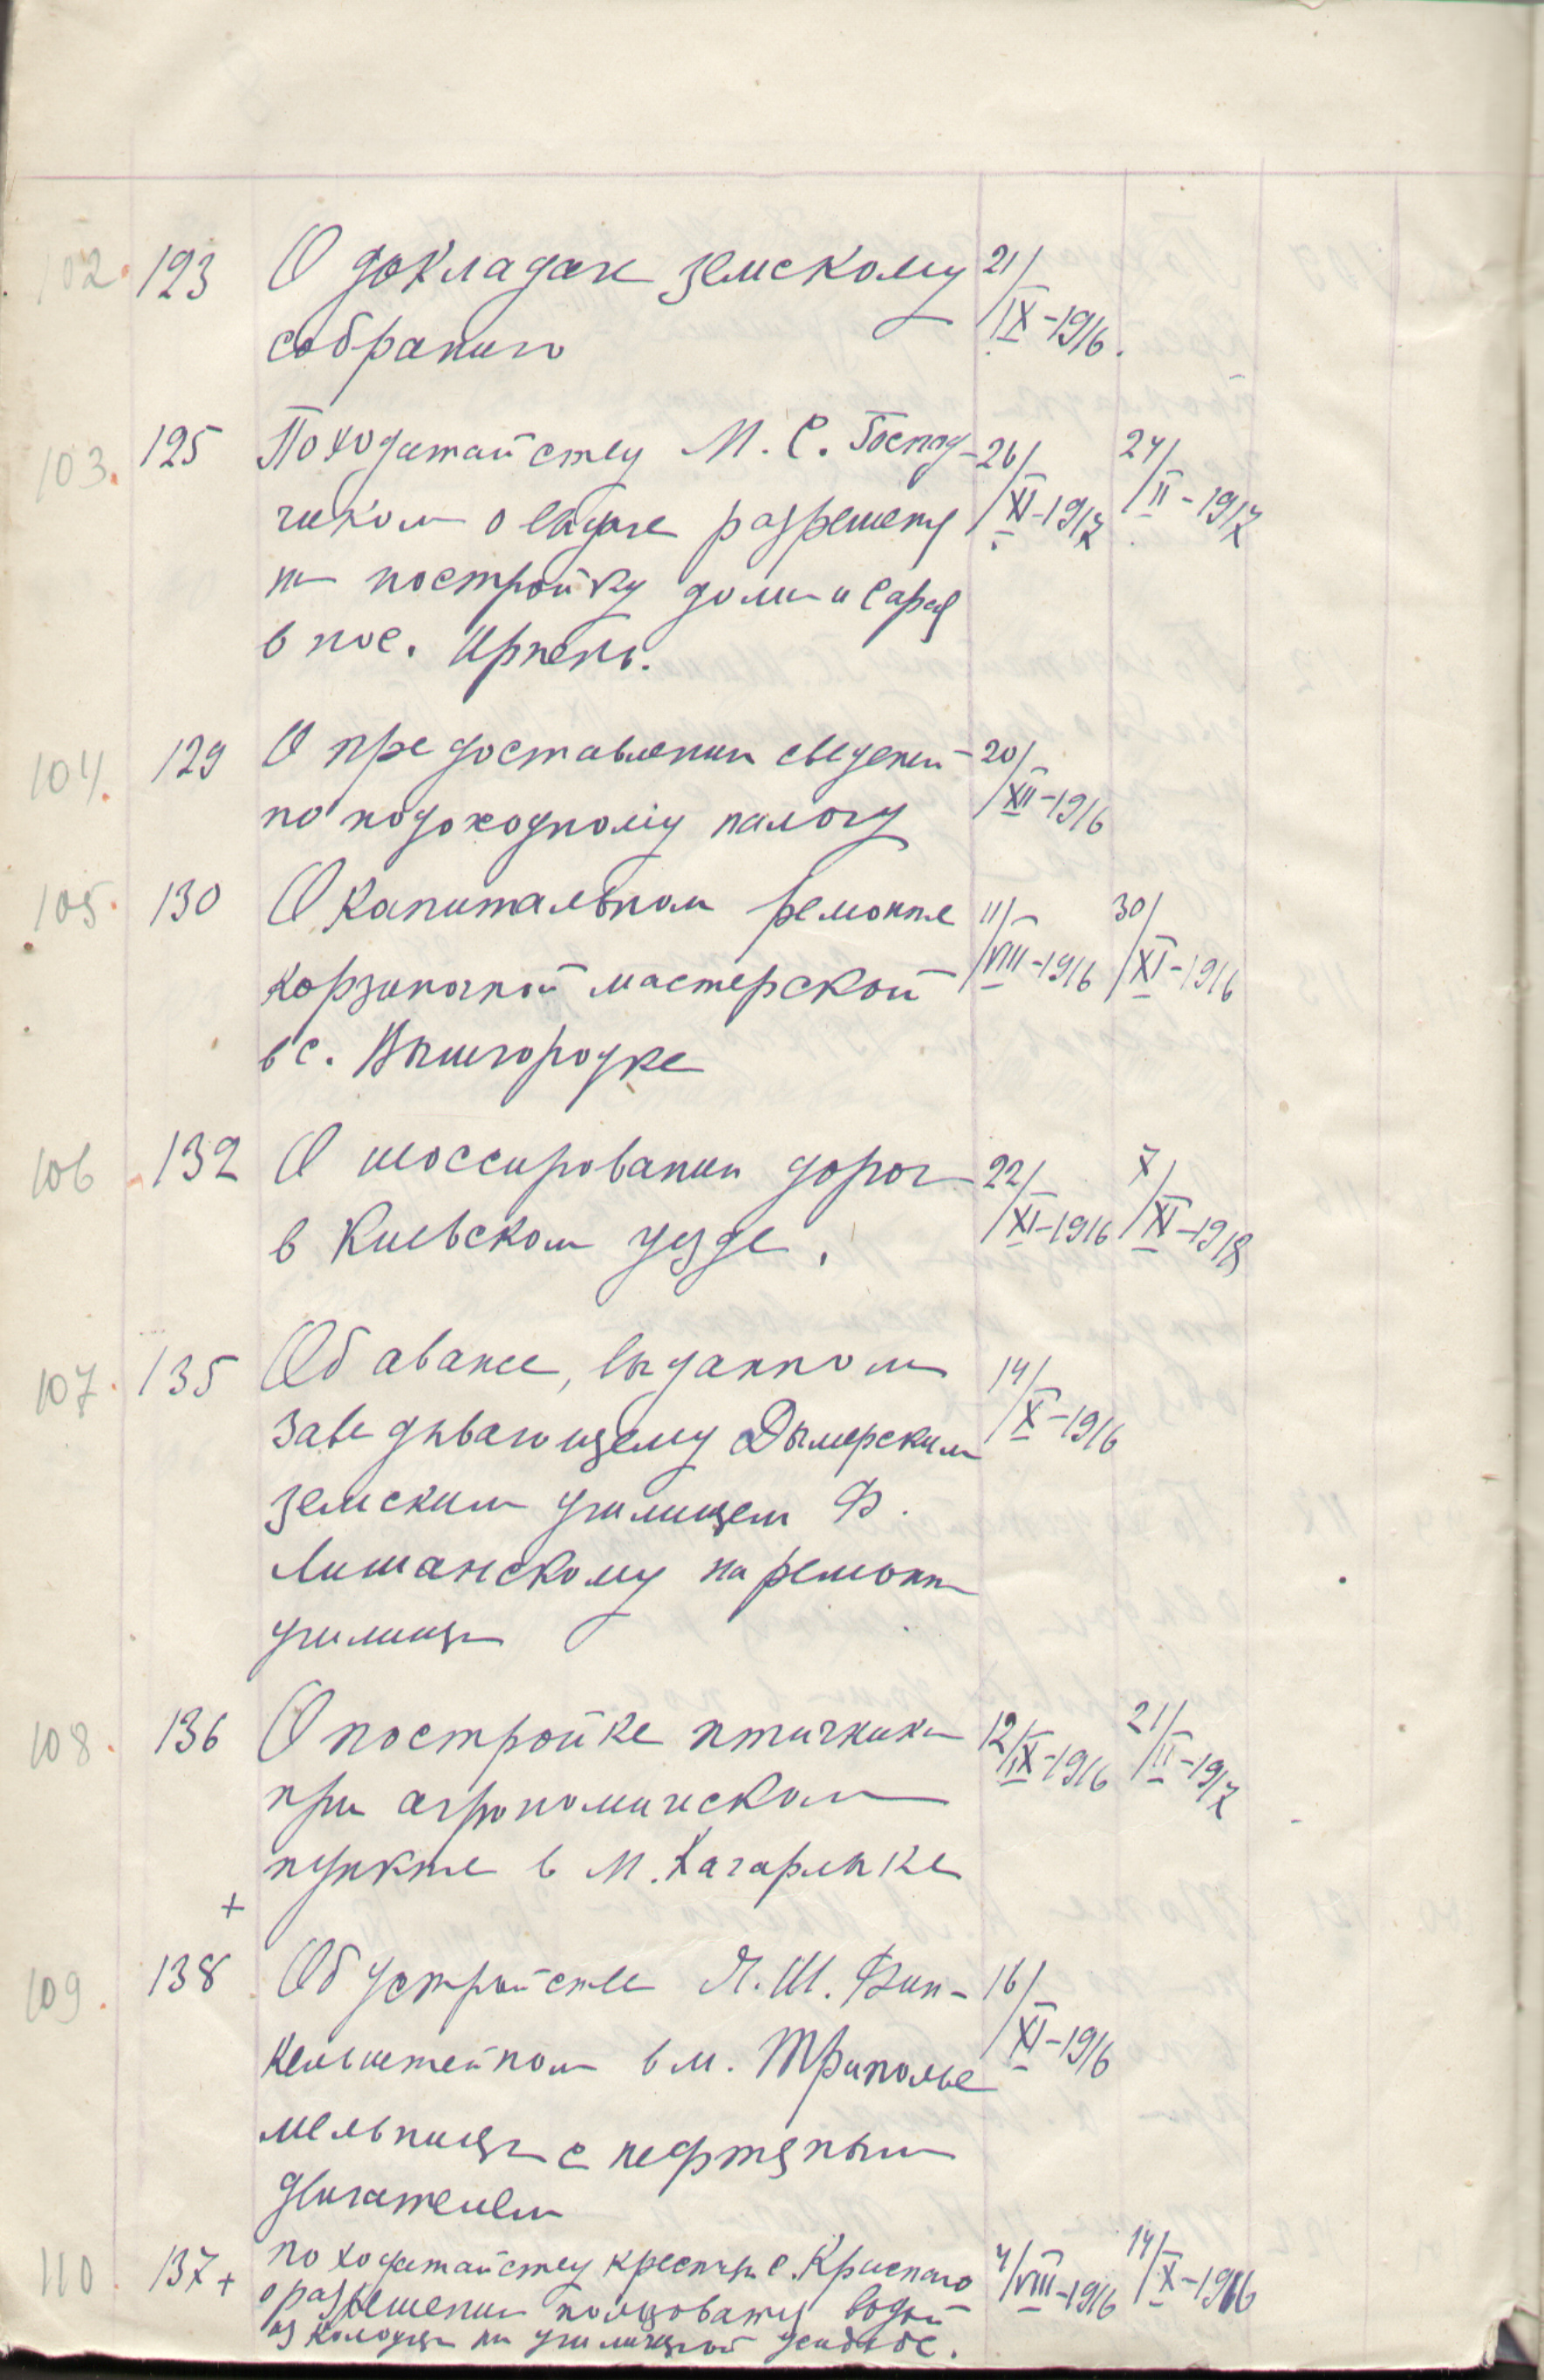 102. 123 О докладах земскому 21/IX-1916.
собранию
103. 125 По ходатайству М. С. Госпад- 26/XI-1917 24/II-1917
чиком о выдаче разрешения
на постройку дома и сарая
в пос. Ирпень.
104. 129 О предоставлении сведений 20/XII-1916
по подоходному налогу
105. 130 О капитальном ремонте 11/VIII-1916 30/XI-1916
корзиночной мастерской
в с. Вышгородке
106. 132 О шоссировании дорог 22/XI-1916 7/XI-1918
в Киевском уезде.
107. 135 Об авансе, выданном 14/X-1916
заведывающему Дымерским
земским училищем Ф.
Лишанскому на ремонт
училища
108. 136 О постройке птичника 12/IX-1916 21/II-1917
при агрономическом
пункте в м. Кагарлыке
+
109. 138 Об устройстве Я. Ш. Фин- 16/XI-1916
кельштейном в м. Триполье
мельницы с нефтяным
двигателем
110 137+ по ходатайству крестьян с. Красного 4/VIII-1916 14/X-1916
о разрешении пользоваться водой
из колодца на училищной усадьбе.